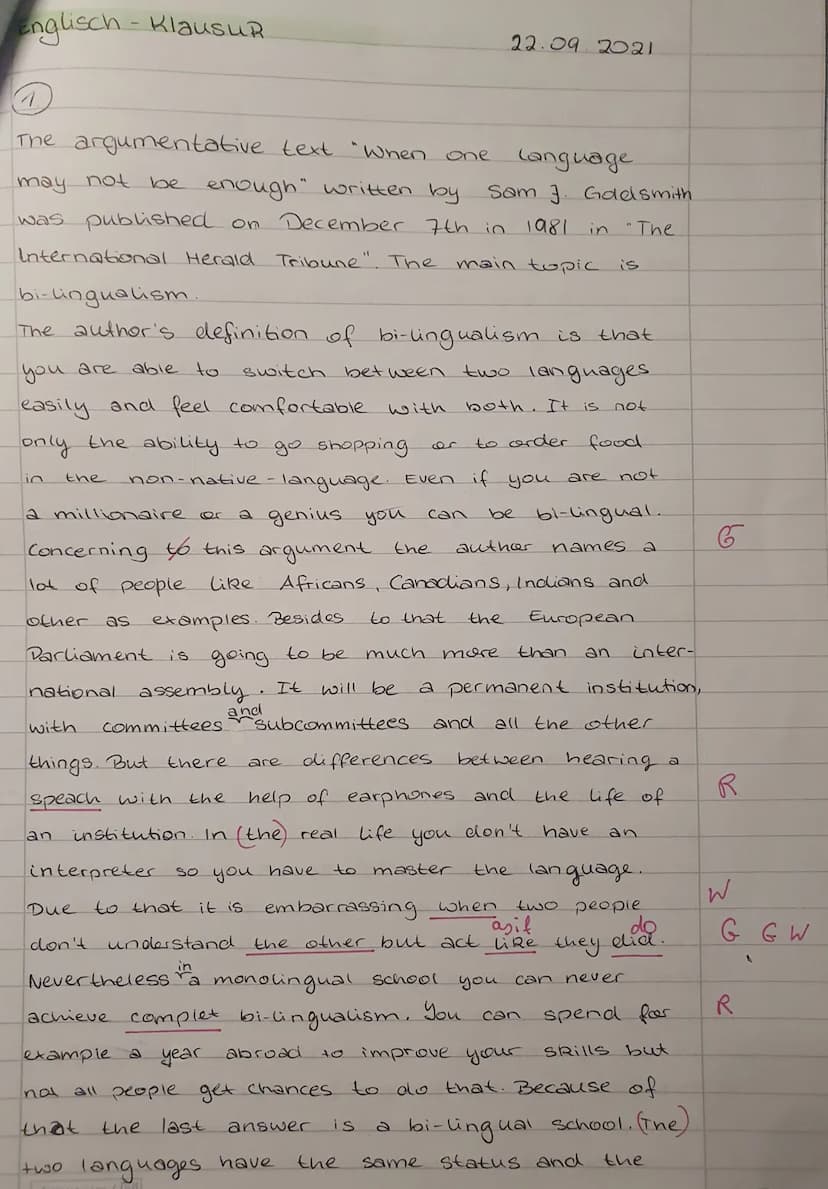 Englisch - Klausur
22.09.2021
1
The argumentative text "When one language
may not be enough" written by Sam J. Goldsmith
was published on December 7th in 1981 in "The
International Herald Tribune". The main topic is
bi-lingualism.
The author's definition of bi-lingualism is that
you are able to switch between two languages
easily and feel comfortable with both. It is not
only the ability to go shopping or to order food
in the non-native-language. Even if you are not
a millionaire or a genius you can be bi-lingual.
Concerning to this argument the author names a G
lot of people like Africans, Canadians, Indians and
other as examples. Besides to that the European
Parliament is going to be much more than an inter-
national assembly. It will be a permanent institution,
with committees and subcommittees and all the other
things. But there are differences between hearing a
speach with the help of earphones and the life of R
an institution. In (the) real life you don't have an
interpreter so you have to master the language.
Due to that it is embarrassing when two people W
as if do
don't understand the other but act like they did. G G W
Nevertheless in a monolingual school you can never
achieve complet bi-lingualism. You can spend for R
example a year abroad to improve your skills but
not all people get chances to do that. Because of
that the last answer is a bi-lingual school. (The)
two languages have the same status and the